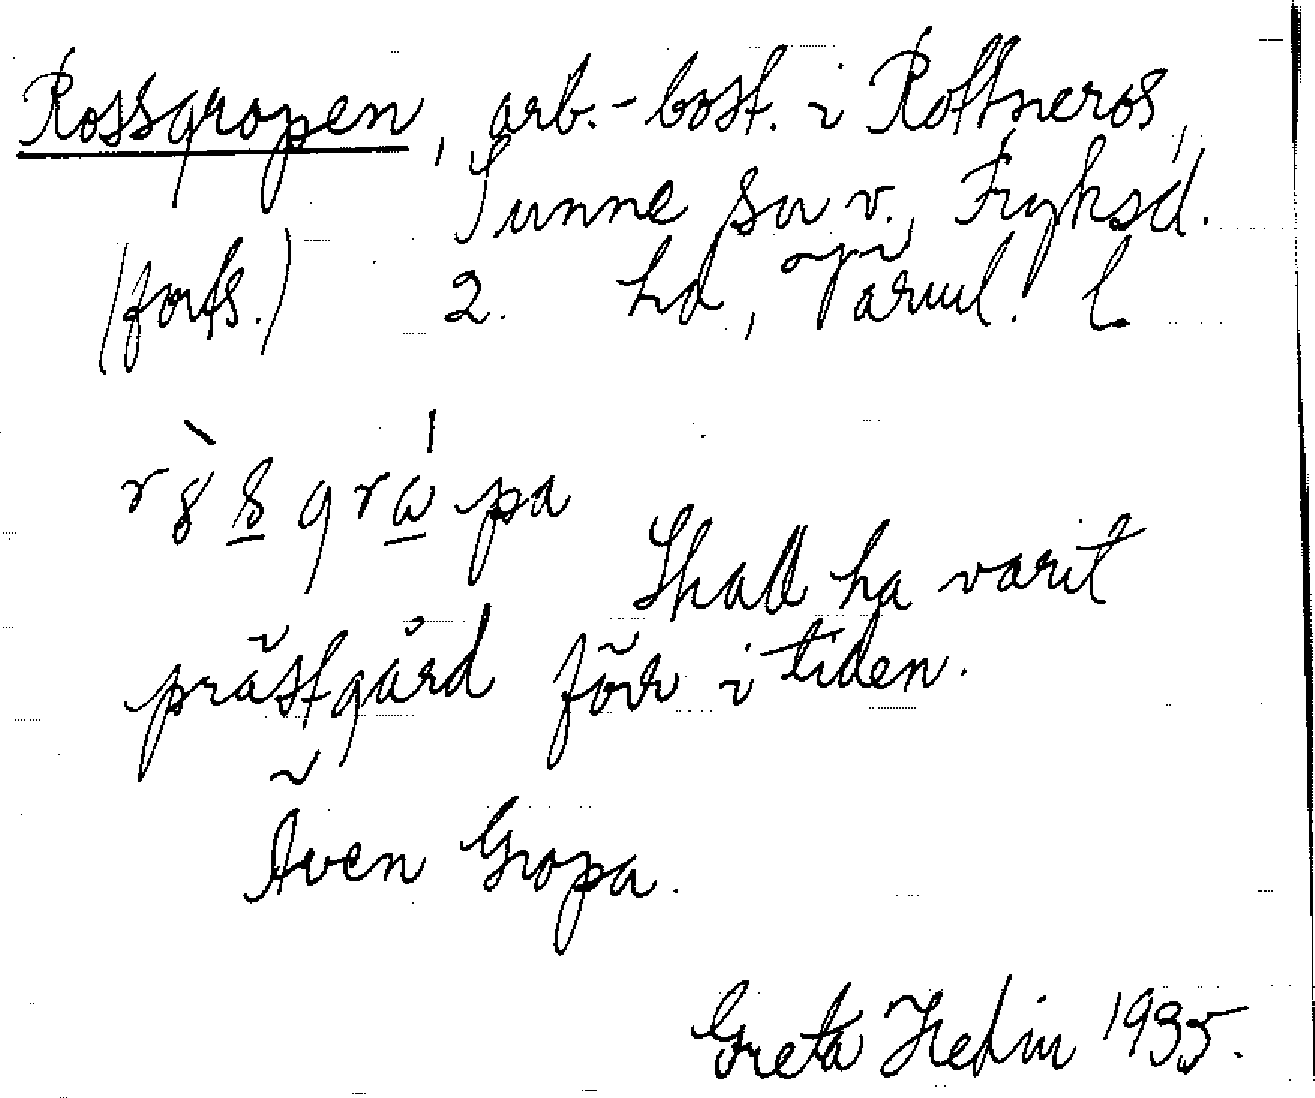 Rossgropen, arb.-bost. i Rottneros,
Sunne sn v., Fryksd.
(forts.) 2. hd, Värml. l.
gropa
Skall ha varit
prästgård förr i tiden.
Även Gropa.
Greta Hedin 1935.